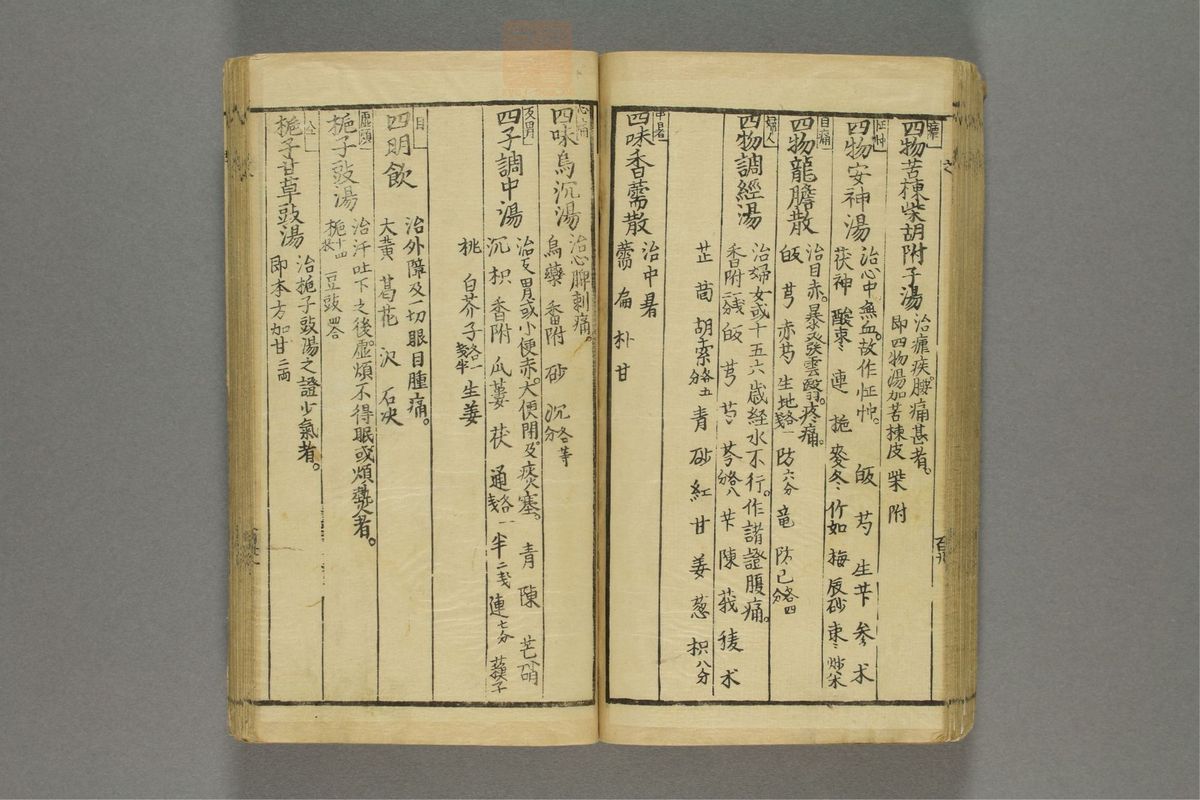 四物苦棟柴胡附子湯
治瘧疾腹痛甚者。
即四物湯加苦棟皮 柴 附
怔忡
四物安神湯
治心中無血。故作怔忡。 皈 芍 生 芐 參 术
茯神 酸枣 連 梔 麥冬 竹如 梅 辰砂 枣 炒米
目痛
四物龍膽散
治目赤。暴發雲翳。疼痛。
皈 芎 赤芍 生地各一戔 防六分 竜 防已各四分
婦人
四物調經湯
治婦女或十五六歳経水不行。作諸證腹痛。
香附一戔二分 皈 芎 芍 芩各八分 芐 陳 莪 稜 术
芷 茴 胡索各五分 青 砂 紅 甘 姜 葱 枳八分
中暑
四味香薷散
治中暑
薷 扁 朴 甘
心痛
四味烏沉湯
治心脾刺痛。
烏藥 香附 砂 沉各等分
反胃
四子調中湯
治反胃或小便赤。大便閉。及痰塞。 青 陳 芒硝
沉 枳 香附 瓜蔞 茯 通各一戔 半二戔 連七分 蘇子
桃 白芥子各一戔半 生姜
目
四明飲
治外障及一切眼目腫痛。
大黄 葛花 沢 石決
虚煩
梔子豉湯
治汗吐下之後。虚煩不得眠或煩熱者。
梔十四枚 豆豉四合
仝
梔子甘草豉湯
治梔子豉湯之證少氣者。
即本方加甘二両